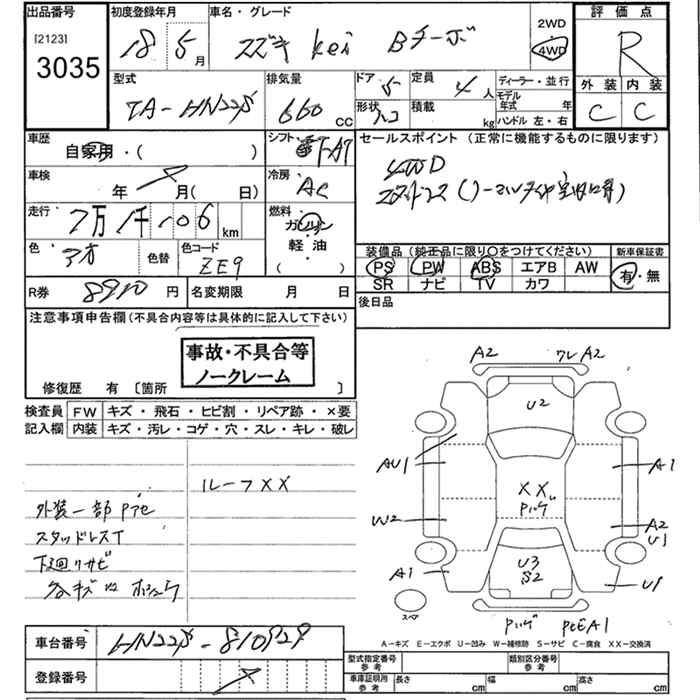 出品番号
[2123]
3035
初度登録年月
18 5月
車名・グレード
スズキ Kei Bターボ
2WD
4WD
評価点
R
外装 内装
C C
型式
TA-HN22S
排気量
660 CC
ドア 5
形状
定員 4人
積載 kg
ディーラー・並行
モデル年式 年
ハンドル 左・右
車歴
自家用・( )
シフト
セールスポイント (正常に機能するものに限ります)
4WD
車検
年 月( 日)
冷房
AC
走行
7万1千106 km
燃料
ガソリン
軽油
( )
色
アオ
色替
色コード
ZE9
装備品 (純正品に限り〇をつけてください)
PS PW ABS エアB AW
SR ナビ TV カワ
新車保証書
有・無
R券 8910 円
名変期限 月 日
後日品
注意事項申告欄 (不具合内容等は具体的に記入して下さい)
事故・不具合等
ノークレーム
修復歴 有 〔箇所 〕
検査員記入欄
FW キズ・飛石・ヒビ割・リペア跡・×要
内装 キズ・汚レ・コゲ・穴・スレ・キレ・破レ
ルーフXX
外装一部Pアセ
スタッドレスT
下廻リサビ
A2 ワレA2
U2
AU1 A1
XX
Pハゲ
W2 A2
U1
U3
S2
A1 U1
スペア
Pハゲ
A-キズ E-エクボ U-凹み W-補修跡 S-サビ C-腐食 XX-交換済
車台番号 HN22S-810929
登録番号
型式指定番号参考
類別区分番号参考
車庫証明用参考 長さ cm 幅 cm 高さ cm